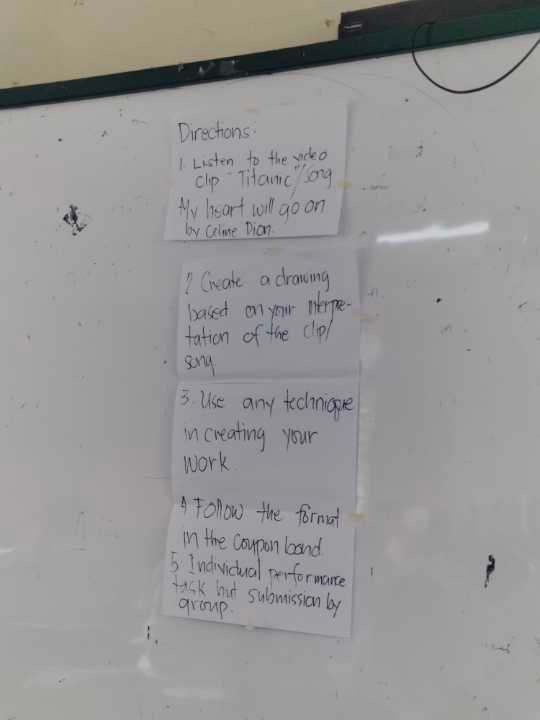 Directions.
1 Listen to the video
clip "Titanic"/song
My heart will go on
by Celine Dion.
2 Create a drawing
based on your interpre-
tation of the clip/
song
3. Use any technique
in creating your
work
4 Follow the format
in the coupon bond
5. Individual performance
task but submission by
group.